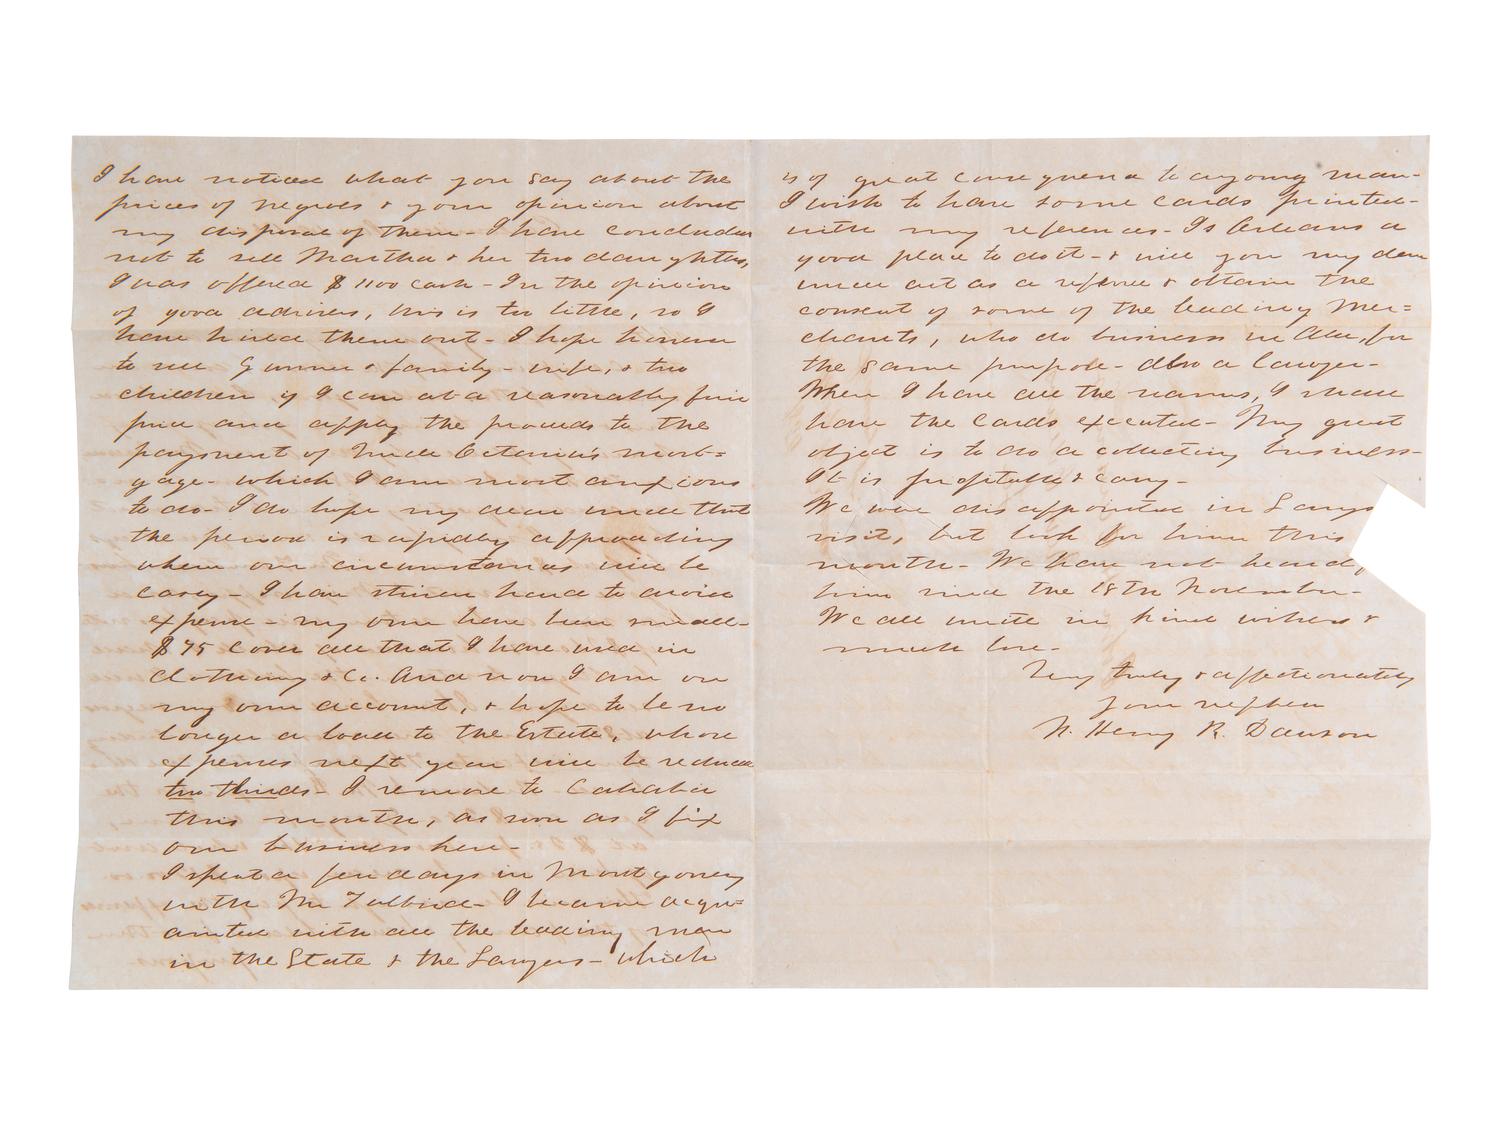 I have noticed what you say about the
prices of negroes & your opinion about
my disposal of them - I have concluded
not to sell Martha & her two daughters,
I was offered $1100 cash - In the opinion
of good advisers, this is too little, so I
have hired them out - I hope however
to sell & family - wife, & two
children if I can at a reasonably fair
price and apply the proceeds to the
payment of Uncle Octavia's mort=
gage - which I am most anxious
to do - I do hope my dear uncle that
the period is rapidly approaching
when our circumstances will be
easy - I have striven hard to avoid
expense - my own have been small -
$75 cover all that I have used in
clothing &c. And now I am on
my own account, & hope to be no
longer a load to the Estate, whose
expenses next year will be reduced
two thirds - I remove to Cahaba
this month, as soon as I fix
our business here -
I spent a few days in Montgomery
with Mr - I became acqu=
ainted with all the leading men
in the State & the Lawyers - which
is of great consequence to a young man -
I wish to have some cards printed -
with my references - Is Orleans a
good place to do it - & will you my dear
uncle act as a referee & obtain the
consent of some of the leading Mer=
chants, who do business in Ala, for
the same purpose - also a lawyer -
When I have all the names, I shall
have the cards executed - My great
object is to do a collecting business -
It is profitable & easy -
We were disappointed in
visit, but look for him this
month - We have not heard
him since the 18th November -
We all unite in kind wishes &
much love -
Very truly & affectionately
Your nephew
N. Henry R. Dawson